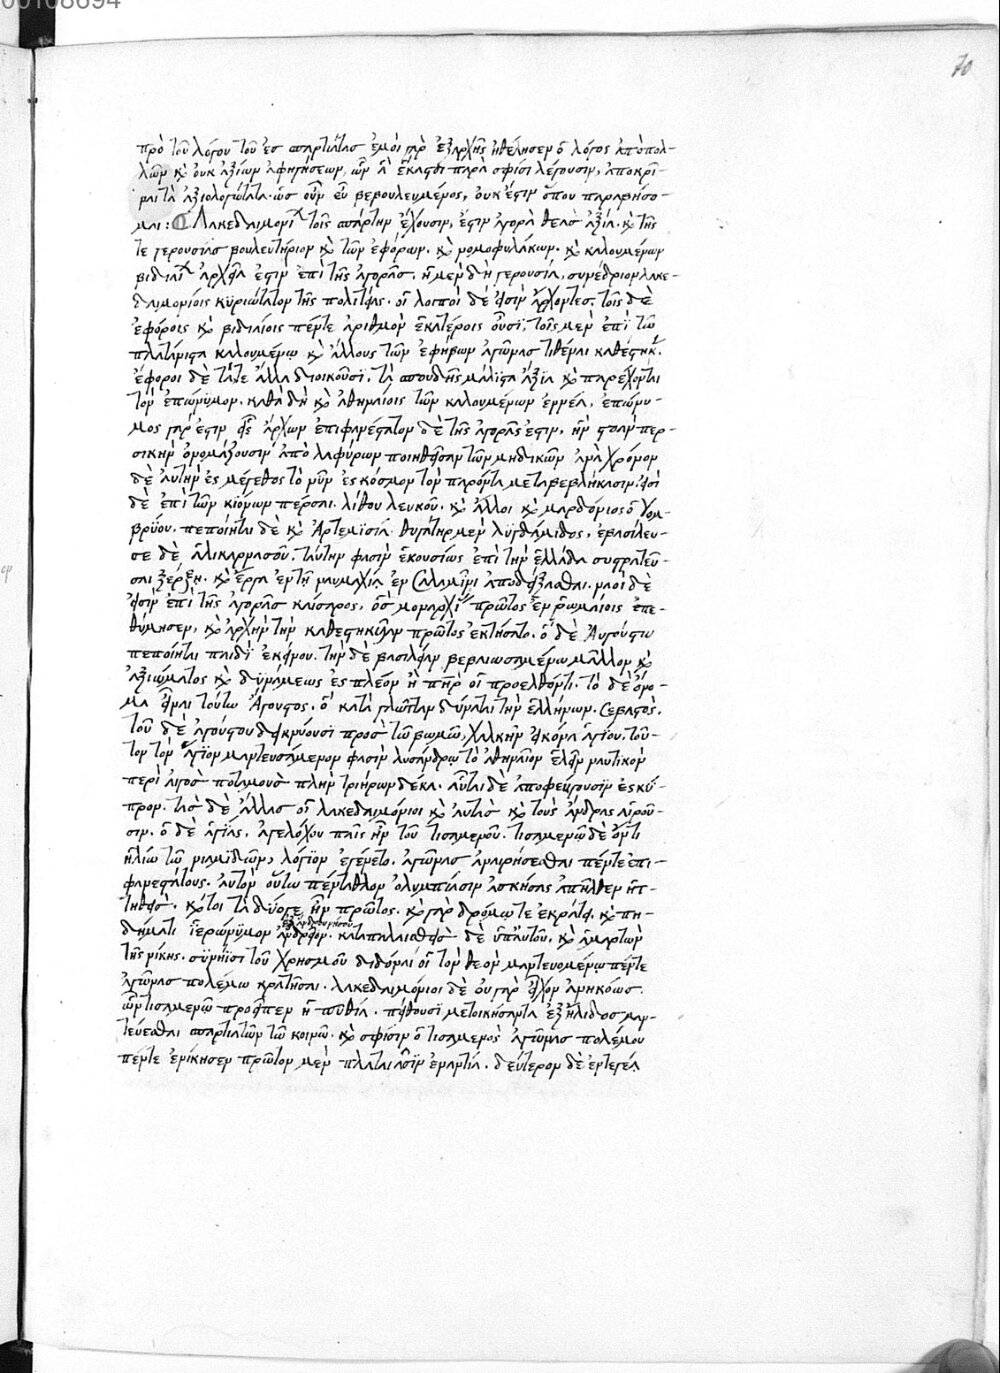 00108694
70
πρὸ τοῦ λόγου τοῦ ἐς σπαρτιάτας ἐμοὶ γὰρ ἐξαρχῆς ἠθέλησεν ὁ λόγος ἀπὸ πολ-
λῶν κ οὐκ ἀξίων ἀφηγήσεων, ὧν ἃ ἕκαστοι παρὰ σφίσι λέγουσιν, ἀποκρῖ-
ναι τὰ ἀξιολογώτατα. ὡς οὖν εὖ βεβουλευμένος, οὐκ ἔστιν ὅπου παραβήσο-
μαι: Λακεδαιμονί τοῖς σπάρτην ἔχουσιν, ἔστιν ἀγορὰ θέας ἀξία. κ τῆς
τε γερουσίας βουλευτήριον κ τῶν ἐφόρων. κ νομοφυλάκων. κ καλουμένων
βιδιαί ἀρχεῖα ἐστὶν ἐπὶ τῆς ἀγορᾶς. ἡ μὲν δὴ γερουσία, συνέδριον λακε-
δαιμονίοις κυριώτατον τῆς πολιτείας. οἱ λοιποὶ δέ εἰσιν ἄρχοντες. τοῖς δὲ
ἐφόροις κ βιδιαίοις πέντε ἀριθμὸν ἑκατέροις οὖσι, τοῖς μὲν ἐπὶ τῶ
πλατανιστα καλουμένω κ ἄλλους τῶν ἐφήβων ἀγῶνας τιθέναι καθέστηκ.
ἔφοροι δὲ τά τε ἄλλα διοικοῦσι, τὰ σπουδῆς μάλιστα ἄξια κ παρέχονται
τὸν ἐπώνυμον. καθὰ δὴ κ ἀθηναίοις τῶν καλουμένων ἐννέα, ἐπώνυ-
μος γάρ ἐστιν εἷς ἄρχων ἐπιφανέστατον δὲ τῆς ἀγορᾶς ἐστιν, ἣν στοὰν περ-
σικὴν ὀνομάζουσιν ἀπὸ λαφύρων ποιηθεῖσαν τῶν μηδικῶν ἀνὰ χρόνον
δὲ αὐτὴν ἐς μέγεθος τὸ νῦν ἐς κόσμον τὸν παρόντα μεταβεβλήκασιν. εἰσὶ
δὲ ἐπὶ τῶν κιόνων πέρσαι. λίθου λευκοῦ. κ ἄλλοι κ μαρδόνιος ὁ γω-
βρύου. πεποίηται δὲ κ Ἀρτεμισία θυγάτηρ μὲν λυγδάμιδος, ἐβασίλευ-
σε δὲ ἁλικαρνασοῦ. ταύτην φασὶν ἑκουσίως ἐπὶ τὴν ἑλλάδα συστρατεῦ-
σαι ξέρξη. κ ἔργα ἐν τῇ ναυμαχία ἐν Σαλαμῖνι ἀποδείξασθαι. ναοὶ δέ
εἰσιν ἐπὶ τῆς ἀγορᾶς καίσαρος, ὃς μοναρχί πρῶτος ἐν ῥωμαίοις ἐπε-
θύμησεν, κ ἀρχὴν τὴν καθεστηκυῖαν πρῶτος ἐκτήσατο. ὁ δὲ Αὐγούστω
πεποίηται παιδὶ ἐκείνου. τὴν δὲ βασιλείαν βεβαιωσαμένω μᾶλλον κ
ἀξιώματος κ δυνάμεως ἐς πλέον ἢ πῆρ οἱ προελθόντι. τὸ δὲ ὄνο-
μα εἶναι τούτω Ἄγουστος. ὃ κατὰ γλῶτταν δύναται τὴν ἑλλήνων. Σεβαστός.
τοῦ δὲ ἀγούστου δεικνύουσι πρὸς τῶ βωμῶ, χαλκῆν εἰκόνα ἁγίου. τοῦ-
τον τὸν ἅγιον μαντευσάμενον φασὶν λυσάνδρω τὸ ἀθηναίων ἑλεῖν ναυτικὸν
περὶ αἰγὸς ποταμοὺς πλὴν τριήρων δέκα. αὗται δὲ ἀποφεύγουσιν ἐς κύ-
προν. τὰς δὲ ἄλλας οἱ λακεδαιμόνιοι κ αὐτὰς κ τοὺς ἄνδρας αἱροῦ-
σιν. ὁ δὲ ἁγίας, ἀγελόχου παῖς ἦν τοῦ τισαμενοῦ. τισαμενῶ δὲ ὄντι
ἠλίω τῶν ριαμιδιῶν, λόγιον ἐγένετο. ἀγῶνας ἀναιρήσεσθαι πέντε ἐπι-
φανεστάτους. αὐτὸν οὕτω πένταθλον ὀλυμπίασιν ἀσκήσας ἀπῆλθεν ἡτ-
τηθείς. κ τοι τὰ δύο γε ἦν πρῶτος. κ γὰρ δρόμω τε ἐκράτει. κ πη-
δήματι ἱερώνυμον ἄνδριον. καταπαλαισθεὶς δὲ ὑπ' αὐτοῦ. κ ἁμαρτὼν
τῆς νίκης. συνίησι τοῦ χρησμοῦ διδόναι οἱ τὸν θεὸν μαντευομένω πέντε
ἀγῶνας πολέμω κρατῆσαι. λακεδαιμόνιοι δὲ οὐ γὰρ εἶχον ἀνηκόως.
ὧν τισαμενῶ προεῖπεν ἡ πυθία. πείθουσι μετοικήσαντα ἐξ ἤλιδος μαν-
τεύεσθαι σπαρτιατῶν τῶ κοινῶ. κ σφίσιν ὁ τισαμενὸς ἀγῶνας πολέμου
πέντε ἐνίκησεν πρῶτον μὲν πλαταιᾶσιν ἐναντία. δεύτερον δὲ ἐν τεγέα